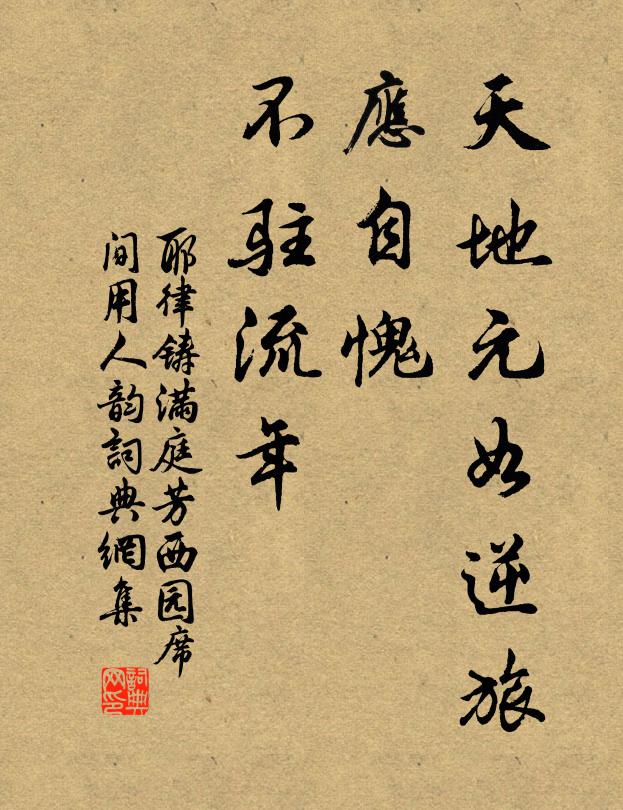 天地元如逆旅
應自愧
不駐流年
耶律鑄滿庭芳西园席
间用人韵詞典網集
詞典
网印